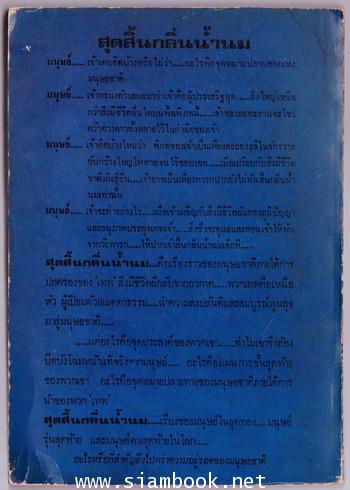 สุดสิ้นกลิ่นน้ำนม
มนุษย์..... เจ้าเคยคิดบ้างหรือไม่ว่า.....อะไรคือจุดหมายปลายทางแห่ง
มนุษยชาติ
มนุษย์..... เจ้าทะนงตัวเสมอมาว่าเจ้าคือผู้ประเสริฐสุด.....ยิ่งใหญ่เหนือ
กว่าสิ่งมีชีวิตอื่นใดบนพื้นพิภพนี้.....เจ้าทะเยอทะยานจะไขว่
คว้าดวงดาวทั้งหลายไว้ในกำมือของเจ้า
มนุษย์..... เจ้าคิดบ้างไหมว่า พิภพของเจ้าเป็นเพียงละอองธุลีในจักรวาล
อันกว้างใหญ่ไพศาลจนไร้ขอบเขต.....เมื่อเปรียบกับสิ่งมีชีวิต
ชาติพันธุ์อื่น.....เจ้าอาจเป็นเพียงทารกปากยังไม่ทันสิ้นกลิ่นน้ำ
นมเท่านั้น
มนุษย์..... เจ้าจะทำอย่างไร.....เมื่อเจ้าเผชิญกับสิ่งมีชีวิตอันทรงภูมิปัญญา
และอนุภาพประดุจเทพเจ้า.....สิ่งซึ่งจะดูแลและสอนเจ้าให้พ้น
จากวัยทารก.....ให้ปากเจ้าสิ้นกลิ่นน้ำนมเสียที.....
สุดสิ้นกลิ่นน้ำนม.....คือเรื่องราวของมนุษยชาติภายใต้การ
ปกครองของ เทพ สิ่งมีชีวิตลึกลับจากอวกาศ.....พวกเทพคือเหนือ
หัว ผู้เปี่ยมด้วยเมตตาธรรม.....นำความสงบสันติและสมบูรณ์พูนสุข
มาสู่มนุษยชาติ.....
.....แต่อะไรคือจุดประสงค์ของพวกเขา.....ทำไมเขาจึงต้อง
ปิดบังโฉมหน้าแท้จริงจากมนุษย์..... อะไรคือแผนการขั้นสุดท้าย
ของพวกเขา อะไรคือจุดหมายปลายทางของมนุษยชาติภายใต้การ
นำของพวก เทพ
สุดสิ้นกลิ่นน้ำนม.....เรื่องของมนุษย์ในยุคทอง.....มนุษย์
รุ่นสุดท้าย และมนุษย์คนสุดท้ายในโลก.....
อะไรหรือที่สำคัญยิ่งไปกว่าความอยู่รอดของมนุษยชาติ
www.siambook.net